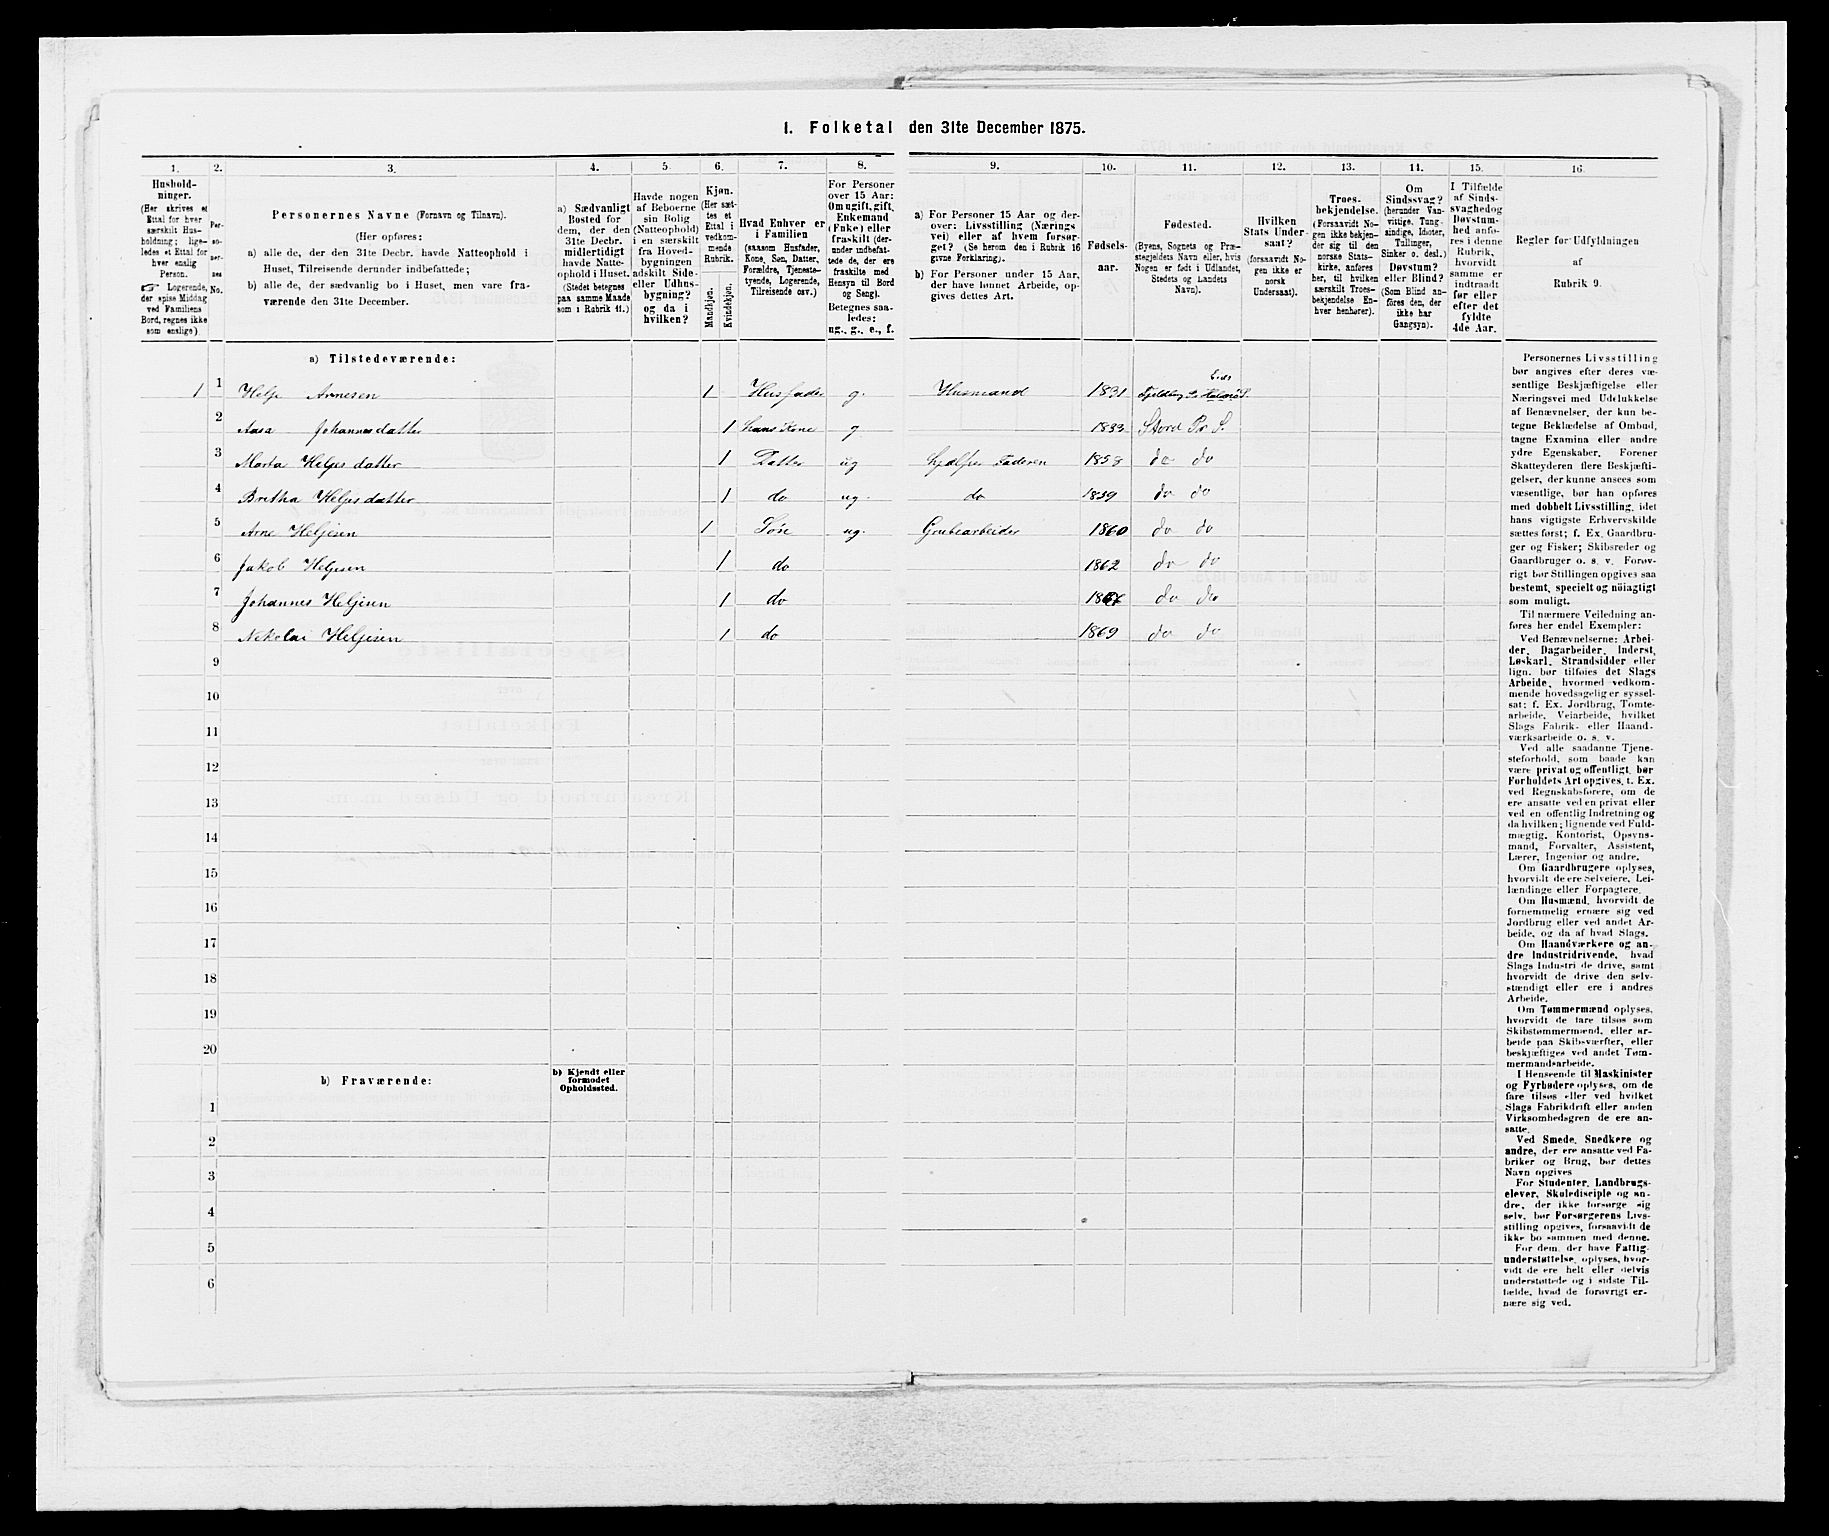 1. Folketal den 31te December 1875.
1. 2. 3. 4. 5. 6. 7. 8. 9. 10. 11. 12. 13. 14. 15. 16.
Hushold-
ninger.
(Her skrives et
Ettal for hver
særskilt Hus-
holdning; lige-
ledes et Ettal for
hver enslig
Person.
☞ Logerende,
der spise Middag
ved Familiens
Bord, regnes ikke
som enslige)
Per-
so-
ner-
nes
No.
Personernes Navne (Fornavn og Tilnavn).
(Her opføres:
a) alle de, der den 31te Decbr. havde Natteophold i
Huset, Tilreisende derunder indbefattede;
b) alle de, der sædvanlig bo i Huset, men vare fra-
værende den 31te December.
a) Sædvanligt
Bosted for
dem, der den
31te Decbr.
midlertidigt
havde Natte-
ophold i Huset.
(Stedet betegnes
paa samme Maade
som i Rubrik 11.)
Havde nogen
af Beboerne
sin Bolig
(Natteophold)
i en særskilt
fra Hoved-
bygningen
adskilt Side-
eller Udhus-
bygning?
og da i
hvilken?
Kjøn.
(Her sæt-
tes et
Ettal i
vedkom-
mende
Rubrik.
Mandkjøn.
Kvindekjøn.
Hvad Enhver er
i Familien
(saasom Husfader,
Kone, Søn, Datter,
Forældre, Tjeneste-
tyende, Logerende,
Tilreisende osv.)
For Personer
over 15 Aar:
Om ugift, gift,
Enkemand
(Enke) eller
fraskilt (der-
under indbefat-
tede de, der ere
fraskilte med
Hensyn til Bord
og Seng).
Betegnes saa-
ledes:
ug., g., e., f.
a) For Personer 15 Aar og der-
over: Livsstilling (Nærings
vei) eller af hvem forsør-
get? (Se herom den i Rubrik 16
givne Forklaring).
b) For Personer under 15 Aar,
der have lønnet Arbeide, op-
gives dettes Art.
Fødsels-
aar.
Fødested.
(Byens, Sognets og Præ-
stegjeldets Navn eller, hvis
Nogen er født i Udlandet,
Stedets og Landets
Navn).
Hvilken
Stats Under-
saat?
(forsaavidt No-
gen ikke er
norsk
Undersaat).
Troes-
bekjendelse.
(Forsaavidt No-
gen ikke bekjen-
der sig til den
norske Stats-
kirke, anføres
her, til hvilken
særskilt Troes-
bekjendelse En-
hver henhører).
Om
Sindssvag?
(herunder Van-
vittige, Tung-
sindige, Idioter,
Tullinger,
Sinker o. desl.)
Døvstum?
eller Blind?
(Som Blind an-
føres den, der
ikke har
Gangsyn).
I Tilfælde
af Sinds-
svaghed og
Døvstum-
hed anfø-
res i denne
Rubrik,
hvorvidt
samme er
indtraadt
før eller
efter det
fyldte
4de Aar.
Regler for Udfyldningen
af
Rubrik 9.
a) Tilstedeværende:
1 1 Helje Arnesen 1 Husfader g. Husmand 1831
2 Aasa Johannesdatter 1 hans Kone g 1833 Stord Pr S.
3 Marta Heljesdatter 1 Datter ug hjælper Faderen 1858 do do
4 Bretha Heljesdatter 1 do ug. do 1859 do do
5 Arne Heljesen 1 Søn ug. Grubearbeider 1860 do do
6 Jakob Heljesen 1 do 1862 do do
7 Johannes Heljesen 1 do do do
8 Nikolai Heljesen 1 do 1869 do do
9
10
11
12
13
14
15
16
17
18
19
20
b) Fraværende:
b) Kjendt eller
formodet
Opholdssted.
1
2
3
4
5
6
Personernes Livsstilling
bør angives efter deres væ-
sentlige Beskjæftigelse eller
Næringsvei med Udelukkelse
af Benævnelser, der kun be-
tegne Beklædelse af Ombud,
tagne Examina eller andre
ydre Egenskaber. Forener
Skatteyderen flere Beskjæfti-
gelser, der kunne ansees som
væsentlige, bør han opføres
med dobbelt Livsstilling, idet
hans vigtigste Erhvervskilde
sættes først; f. Ex. Gaardbru-
ger og Fisker; Skibsreder og
Gaardbruger o. s. v. Forøv-
rigt bør Stillingen opgives saa
bestemt, specielt og nöiagtigt
som muligt.
Til nærmere Veiledning an-
føres her endel Exempler:
Ved Benævnelserne: Arbei-
der, Dagarbeider, Inderst,
Løskarl, Strandsidder eller
lign. bør tilføies det Slags
Arbeide, hvormed vedkom-
mende hovedsagelig er syssel-
sat; f. Ex. Jordbrug, Tomte-
arbeide, Veiarbeide, hvilket
Slags Fabrik- eller Haand-
værksarbeide o. s. v.
Ved alle saadanne Tjene-
steforhold, som baade kan
være privat og offentligt, bør
Forholdets Art opgives, t. Ex.
ved Regnskabsførere, om de
ere ansatte ved en privat eller
ved en offentlig Indretning og
da hvilken; lignende ved Fuld-
mægtig, Kontorist, Opsyns-
mand, Forvalter, Assistent,
Lærer, Ingeniør og andre.
Om Gaardbrugere oplyses,
hvorvidt de ere Selveiere, Lei-
lændinge eller Forpagtere.
Om Husmænd, hvorvidt de
fornemmelig ernære sig ved
Jordbrug eller ved andet Ar-
beide, og da af hvad Slags.
Om Haandværkere og an-
dre Industridrivende, hvad
Slags Industri de drive, samt
hvorvidt de drive den selv-
stændigt eller ere i andres
Arbeide.
Om Tømmermænd oplyses,
hvorvidt de fare tilsøs som
Skibstømmermænd, eller ar-
beide paa Skibsværfter, eller
beskjæftiges ved andet Tøm-
mermandsarbeide.
I Henseende til Maskinister
og Fyrbødere oplyses, om de
fare tilsøs eller ved hvilket
Slags Fabrikdrift eller anden
Virksomhedsgren de ere an-
satte.
Ved Smede, Snedkere og
andre, der ere ansatte ved Fa-
briker og Brug, bør dettes
Navn opgives
For Studenter, Landbrugs-
elever, Skoledisciple og an-
dre, der ikke forsørge sig
selv, bør Forsørgerens Livs-
stilling opgives, forsaavidt de
ikke bo sammen med denne.
For dem, der have Fattig-
understøttelse, oplyses, hvor-
vidt de ere helt eller delvis
understøttede og i sidste Til-
fælde, hvad de forøvrigt er-
nære sig ved.